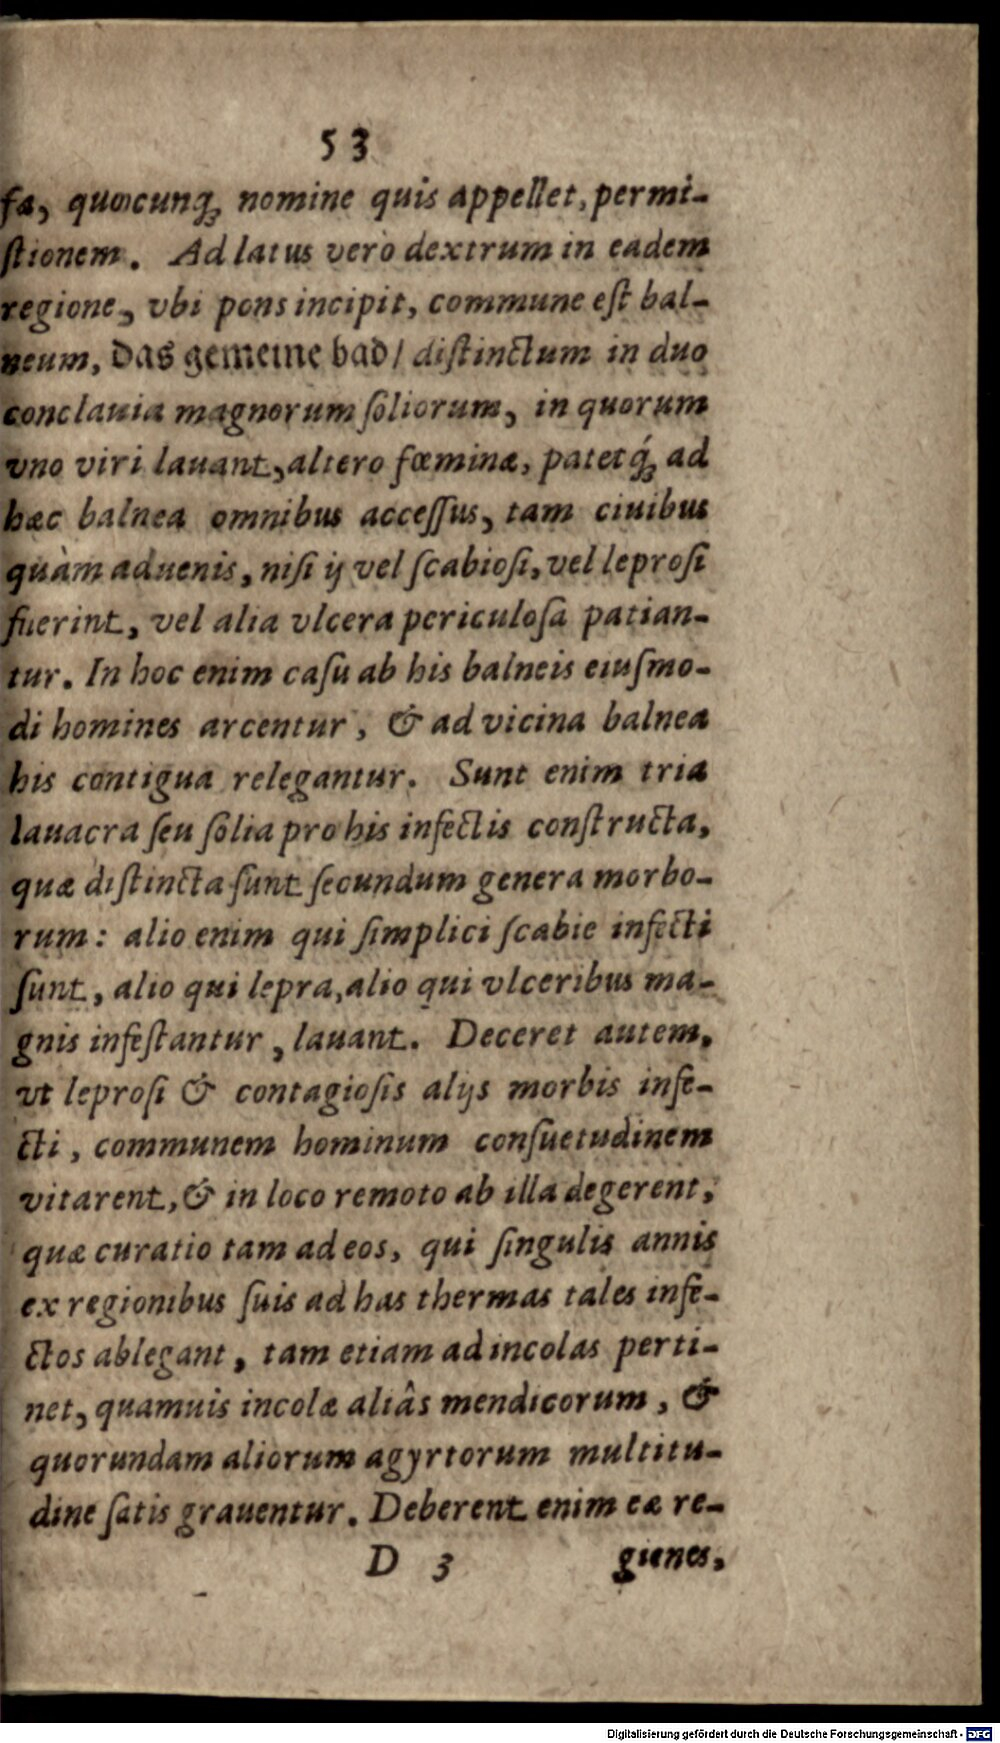 53
ſa, quocunq́; nomine quis appellet, permi-
ſtionem. Ad latus verò dextrum in eadem
regione, vbi pons incipit, commune eſt bal-
neum, das gemeine bad/ diſtinctum in duo
conclauia magnorum ſoliorum, in quorum
vno viri lauant, altero fœminæ, patetq́; ad
hæc balnea omnibus acceſſus, tam ciuibus
quàm aduenis, niſi ij vel ſcabioſi, vel leproſi
fuerint, vel alia vlcera periculoſa patian-
tur. In hoc enim caſu ab his balneis eiuſmo-
di homines arcentur, & ad vicina balnea
his contigua relegantur. Sunt enim tria
lauacra ſeu ſolia pro his infectis conſtructa,
quæ diſtincta ſunt ſecundum genera morbo-
rum: alio enim qui ſimplici ſcabie infecti
ſunt, alio qui lepra, alio qui vlceribus ma-
gnis infeſtantur, lauant. Deceret autem,
vt leproſi & contagioſis alijs morbis infe-
cti, communem hominum conſuetudinem
vitarent, & in loco remoto ab illa degerent,
quæ curatio tam ad eos, qui ſingulis annis
ex regionibus ſuis ad has thermas tales infe-
ctos ablegant, tam etiam ad incolas perti-
net, quamuis incolæ aliâs mendicorum, &
quorundam aliorum agyrtorum multitu-
dine ſatis grauentur. Deberent enim eæ re-
D 3 giones,
Digitalisierung gefördert durch die Deutsche Forschungsgemeinschaft - DFG